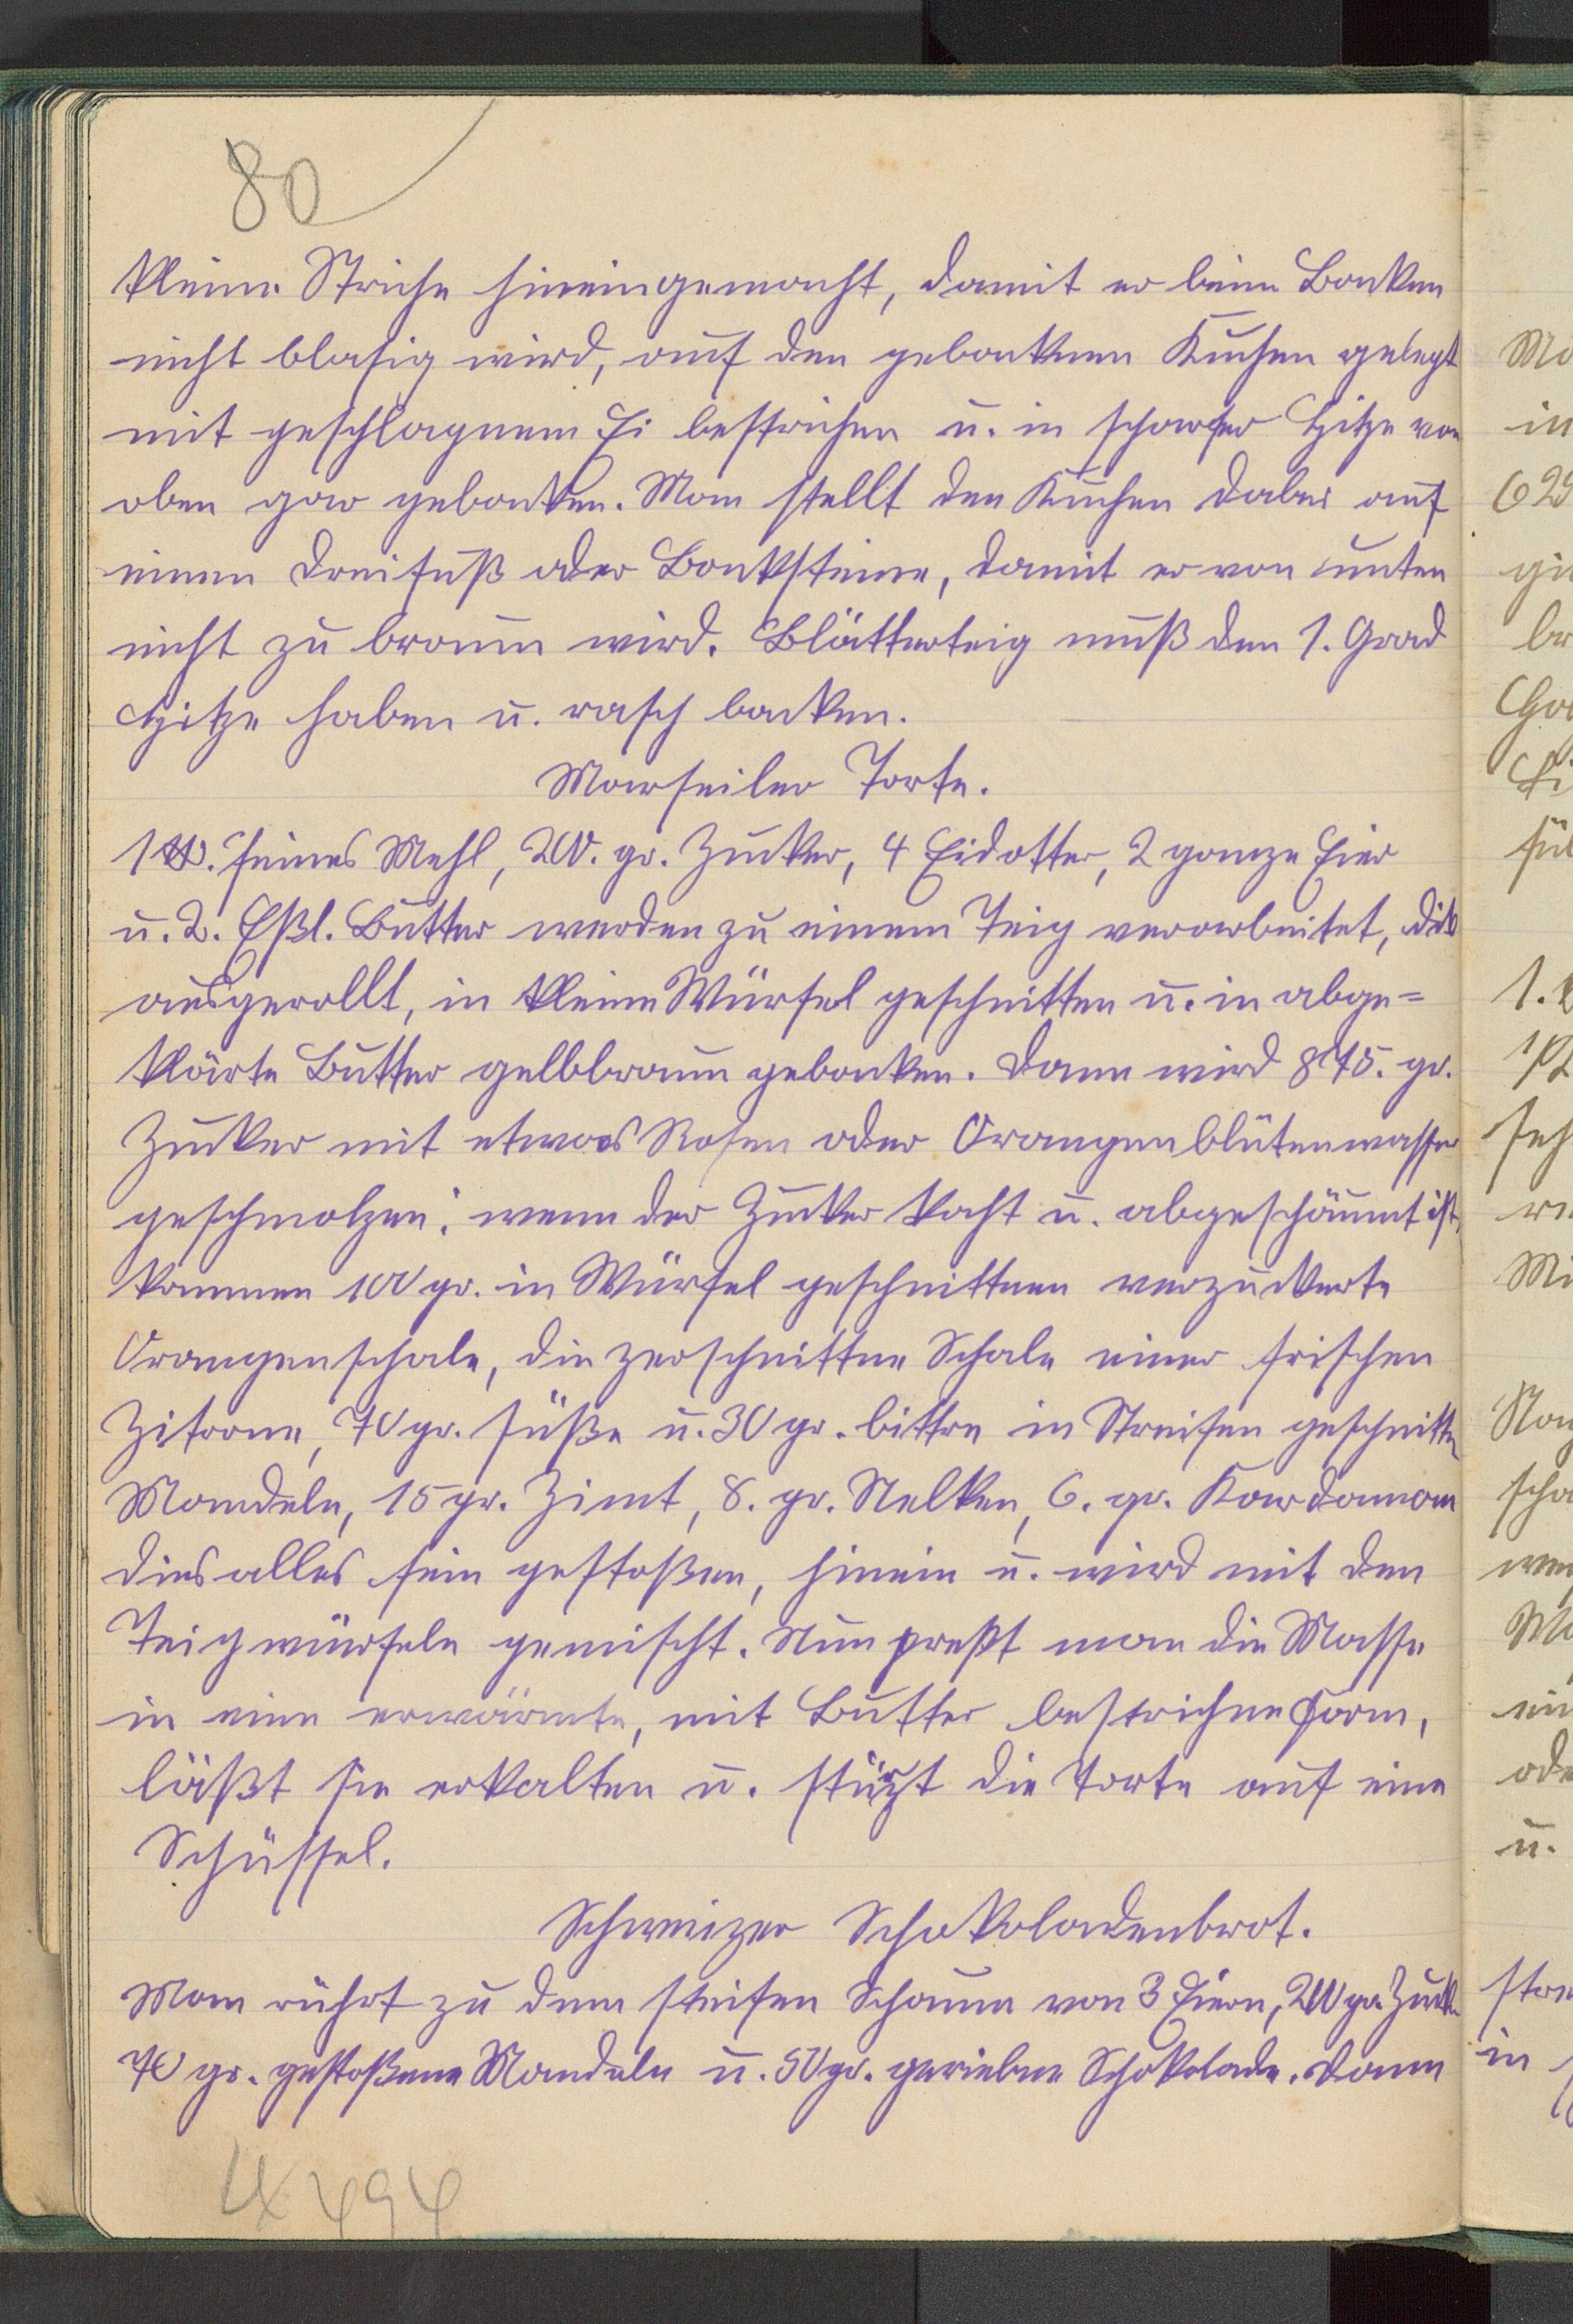 80
kleine Striche hineingemacht, damit er beim Backen
nicht blasig wird, auf den gebackenen Kuchen gelegt
mit geschlagnem Ei bestrichen u. in scharfer Hitze von
oben gar gebacken. Man stellt den Kuchen dabei auf
einen Dreifuß oder Backsteine, damit er von unten
nicht zu braun wird. Blätterteig muß den 1. Grad
Hitze haben u. rasch backen.
Marseiler Torte.
1 ℔. feines Mehl, 200. gr. Zucker, 4 Eidotter, 2 ganze Eier
u. 2. Eßl. Butter werden zu einem Teig verarbeitet, dick
ausgerollt, in kleine Würfel geschnitten u. in abge=
klärte Butter gelbbraun gebacken. Dann wird 875. gr.
Zucker mit etwas Rosen oder Orangenblütenwasser
geschmolzen; wenn der Zucker kocht u. abgeschäumt ist,
kommen 100 gr. in Würfel geschnittnen verzuckerte
Orangenschale, die zerschnittne Schale einer frischen
Zitrone, 70 gr. süße u. 30 gr. bittre in Streifen geschnittn
Mandeln, 15 gr. Zimt, 8. gr. Nelken, 6. gr. Kardamom
dies alles fein gestoßen, hinein u. wird mit den
Teigwürfeln gemischt. Nun preßt man die Masse
in eine erwärmte, mit Butter bestrichne Form,
läßt sie erkalten u. stürzt die Torte auf eine
Schüssel.
Schweizer Schokoladenbrot.
Man rührt zu dem steifen Schaum von 3 Eiern, 200 gr. Zuck.
70 gr. gestoßene Mandeln u. 50 gr. geriebne Schokolade. Dann